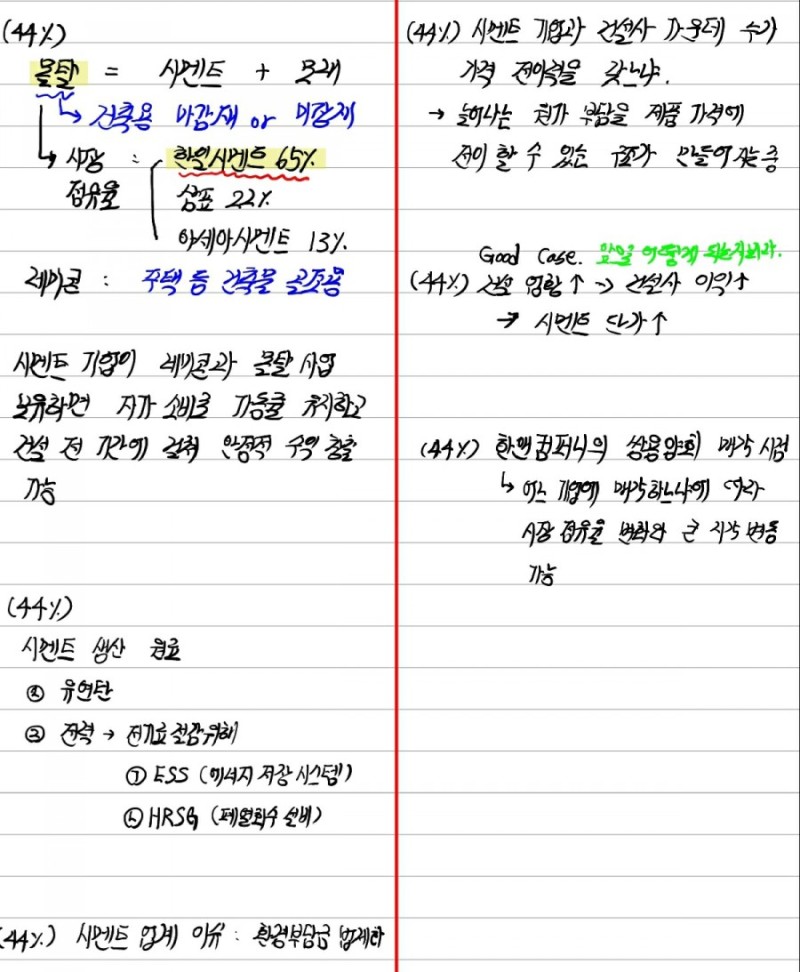 (44%)
몰탈 = 시멘트 + 모래
↳ 건축용 마감재 or 미장재
↳ 시장 점유율 : 한일시멘트 65%
삼표 22%
아세아시멘트 13%
레미콘 : 주택 등 건축물 골조용
시멘트 기업이 레미콘과 몰탈 사업
보유하면 자가 소비로 가동률 유지하고
건설 전 기간에 걸쳐 안정적 수익 창출
가능
(44%)
시멘트 생산 원료
② 유연탄
② 전력 → 전기료 절감 위해
㉠ ESS (에너지 저장 시스템)
㉡ HRSG (폐열회수 설비)
(44%) 시멘트 업계 이슈 : 환경부담금 법제화
(44%) 시멘트 기업과 건설사 가운데 누가
가격 전이력을 갖느냐.
→ 늘어나는 원가 부담을 제품 가격에
전이 할 수 있는 구조가 만들어지는 중
Good Case.
(44%) 건설 업황↑ → 건설사 이익↑
→ 시멘트 단가↑
(44%) 한앤컴퍼니의 쌍용양회 매각 시점
↳ 어느 기업에 매각하느냐에 따라
시장 점유율 변화와 큰 지각 변동
가능